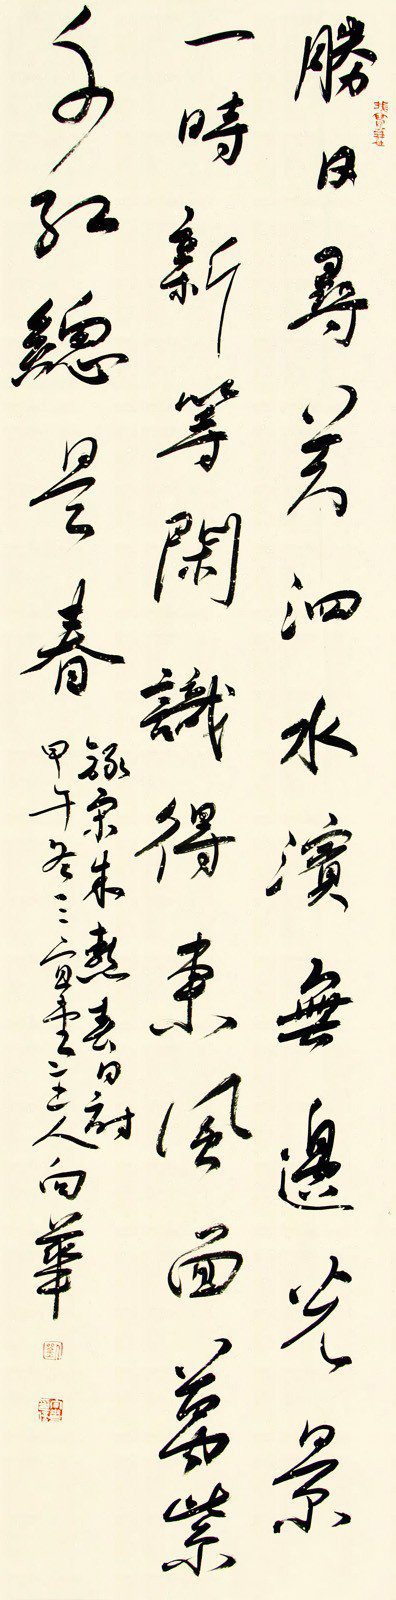 勝日尋芳泗水濱無邊光景
一時新等閑識得東風面萬紫
千紅總是春
錄宋朱熹春日詩
甲午冬三宜堂主人向華